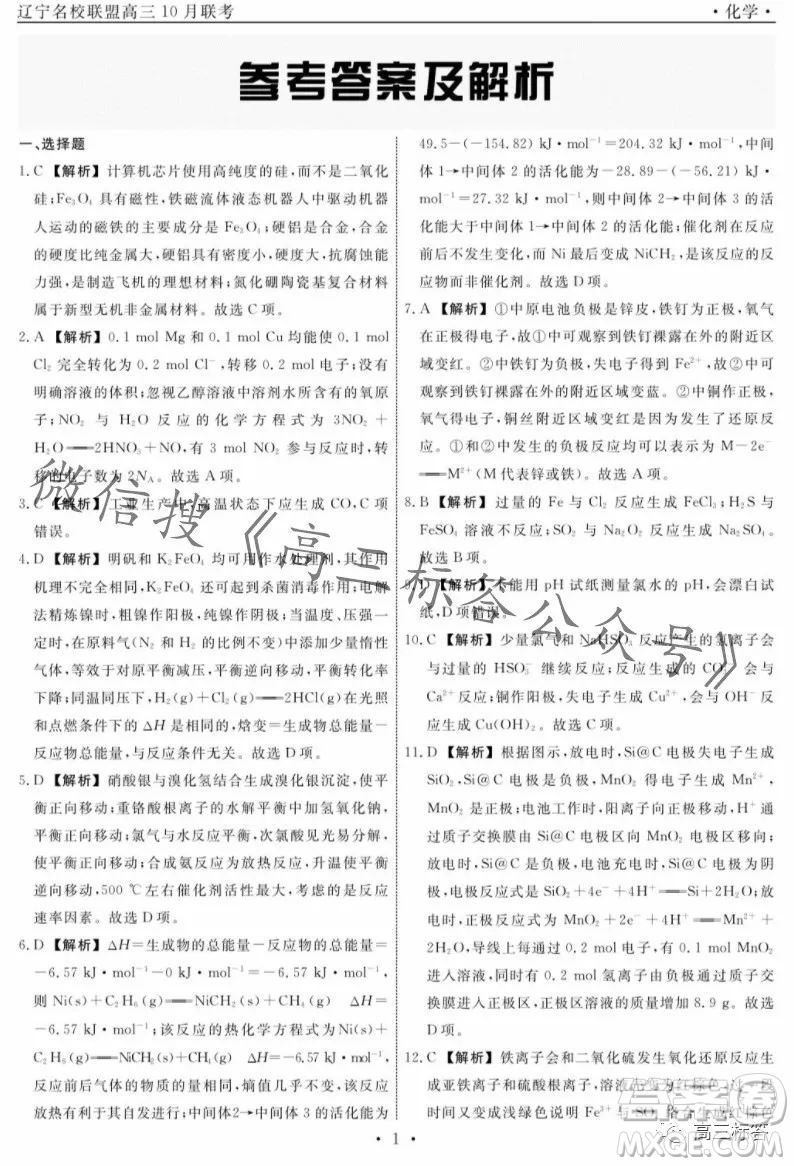 辽宁名校联盟高三10月联考
·化学·
参考答案及解析
一、选择题
1.C 【解析】计算机芯片使用高纯度的硅，而不是二氧化
硅；Fe₃O₄ 具有磁性，铁磁流体液态机器人中驱动机器
人运动的磁铁的主要成分是 Fe₃O₄；硬铝是合金，合金
的硬度比纯金属大，硬铝密度小、强度高，抗腐蚀能
力强，是制造飞机的理想材料；氮化硼陶瓷基复合材料
属于新型无机非金属材料。故选 C 项。
2.A 【解析】0.1 mol Mg 和 0.1 mol Cu 均能使 0.1 mol
Cl₂ 完全转化为 0.2 mol Cl⁻，转移 0.2 mol 电子；没有
明确溶液的体积；忽视乙醇溶液中溶剂水所含有的氧原
子；NO₂ 与 H₂O 反应的化学方程式为 3NO₂ +
H₂O══2HNO₃+NO，有 3 mol NO₂ 参与反应时，转
移的电子数为 2N_A。故选 A 项。
3.C 【解析】工业生产中，高温状态下应生成 CO，C 项
错误。
4.D 【解析】明矾和 K₂FeO₄ 均可用作水处理剂，其作用
机理不完全相同，K₂FeO₄ 还可起到杀菌消毒作用；电解
法精炼镍时，粗镍作阳极，纯镍作阴极；当温度、压强一
定时，在原料气(N₂ 和 H₂ 的比例不变)中添加少量惰性
气体，等效于对原平衡减压，平衡逆向移动，平衡转化率
下降；同温同压下，H₂(g)+Cl₂(g)══2HCl(g)在光照
和点燃条件下的 ΔH 是相同的，焓变=生成物总能量−
反应物总能量，与反应条件无关。故选 D 项。
5.D 【解析】硝酸银与溴化氢结合生成溴化银沉淀，使平
衡正向移动；重铬酸根离子的水解平衡中加氢氧化钠，
平衡正向移动；氯气与水反应平衡，次氯酸见光易分解，
使平衡正向移动；合成氨反应为放热反应，升温使平衡
逆向移动，500 ℃左右催化剂活性最大，考虑的是反应
速率因素。故选 D 项。
6.D 【解析】ΔH=生成物的总能量−反应物的总能量=
−6.57 kJ·mol⁻¹−0 kJ·mol⁻¹=−6.57 kJ·mol⁻¹，
则 Ni(s)+C₂H₆(g)══NiCH₂(s)+CH₄(g) ΔH=
−6.57 kJ·mol⁻¹；该反应的热化学方程式为Ni(s)+
C₂H₆(g)══NiCH₂(s)+CH₄(g) ΔH=−6.57 kJ·mol⁻¹，
反应前后气体的物质的量相同，熵值几乎不变，该反应
自发进行得益于其自身放热；中间体2→中间体3的活化能为
49.5−(−154.82) kJ·mol⁻¹=204.32 kJ·mol⁻¹，中间
体 1→中间体 2 的活化能为−28.89−(−56.21) kJ·
mol⁻¹=27.32 kJ·mol⁻¹，则中间体 2→中间体 3 的活
化能大于中间体 1→中间体 2 的活化能；催化剂在反应
前后不发生变化，而 Ni 最后变成 NiCH₂，是该反应的反
应物而非催化剂。故选 D 项。
7.A 【解析】①中原电池负极是锌皮，铁钉为正极，氧气
在正极得电子，故①中可观察到铁钉裸露在外的附近区
域变红。②中铁钉为负极，失电子得到 Fe²⁺，故②中可
观察到铁钉裸露在外的附近区域变蓝。②中铜作正极，
得电子，铜丝附近区域变红是因为发生了还原反
应。①②中发生的负极反应均可以表示为 M−2e⁻
══M²⁺(M代表锌或铁)。故选 A 项。
8.B 【解析】过量的 Fe 与 Cl₂ 反应生成 FeCl₃；H₂S 与
FeSO₄ 溶液不反应；SO₂ 与 Na₂O₂ 反应生成 Na₂SO₄。
故选 B 项。
9.D 【解析】不能用 pH 试纸测量氯水的 pH，会漂白试
纸，D 项错误。
10.C 【解析】少量氯气和 NaHSO₃ 反应产生的氢离子会
与过量的 HSO₃⁻ 继续反应；反应生成的 CO₃²⁻ 会与
Ca²⁺反应；铜作阳极，失电子生成 Cu²⁺，会与 OH⁻反
应生成 Cu(OH)₂。故选 C 项。
11.D 【解析】根据图示，放电时，Si@C 电极失电子生成
SiO₂，Si@C 电极为负极，MnO₂ 得电子生成 Mn²⁺，
MnO₂ 是正极；电池工作时，阳离子向正极移动，故 H⁺
通过质子交换膜由 Si@C 电极区向 MnO₂ 电极区移向；
放电时，Si@C 电极为负极，电池充电时，Si@C 电极为阴
极，电极反应式是 SiO₂+4e⁻+4H⁺══Si+2H₂O；放
电时，正极反应式为 MnO₂+2e⁻+4H⁺══Mn²⁺+
2H₂O，导线上每通过 0.2 mol 电子，有 0.1 mol MnO₂
进入溶液，同时有 0.2 mol 氢离子由质子交换膜
进入正极区，故正极区溶液的质量增加 8.9 g。故选
D 项。
12.C 【解析】铁离子会和二氧化硫发生氧化还原反应生
成亚铁离子和硫酸根离子，
时间又变成浅绿色说明 Fe³⁺
· 1 ·
微信搜《高三标答公众号》
高三标答
MXQE.COM